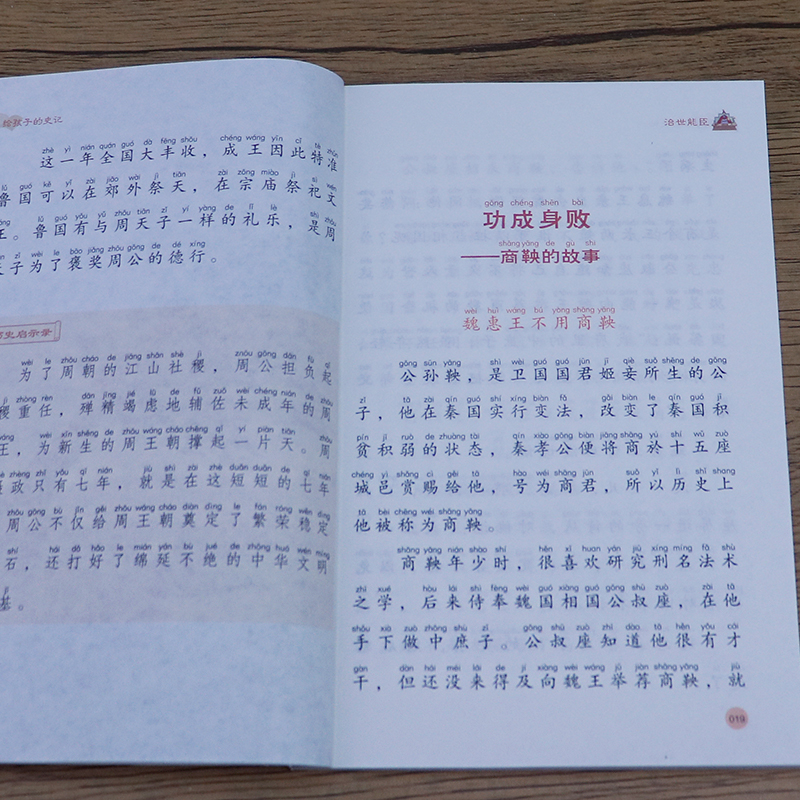 给孩子的史记
zhè yì nián quán guó dà fēng shōu chéng wáng yīn cǐ tè zhǔn
这一年全国大丰收，成王因此特准
lǔ guó kě yǐ zài jiāo wài jì tiān zài zōng miào jì sì wén
鲁国可以在郊外祭天，在宗庙祭祀文
wáng lǔ guó yǒu yǔ zhōu tiān zǐ yí yàng de lǐ yuè shì zhōu
王。鲁国有与周天子一样的礼乐，是周
zǐ wèi le bāo jiǎng zhōu gōng de dé xíng
天子为了褒奖周公的德行。
史启示录
wèi le zhōu cháo de jiāng shān shè jì zhōu gōng dān fù qǐ
为了周朝的江山社稷，周公担负起
zhòng rèn dān jīng jié lǜ de fǔ zuǒ wèi chéng nián de zhōu
重任，殚精竭虑地辅佐未成年的周
wáng wèi xīn shēng de zhōu wáng cháo chēng qǐ yí piàn tiān zhōu
王，为新生的周王朝撑起一片天。周
shè zhèng zhǐ yǒu qī nián jiù shì zài zhè duǎn duǎn de qī nián
摄政只有七年，就是在这短短的七年
zhōu gōng bù jǐn gěi zhōu wáng cháo diàn dìng le fán róng wěn dìng
周公不仅给周王朝奠定了繁荣稳定
shí hái dǎ hǎo le mián yán bù jué de zhōng huá wén míng
石，还打好了绵延不绝的中华文明
jī
基。
治世能臣
gōng chéng shēn bài
功成身败
shāng yāng de gù shi
——商鞅的故事
wèi huì wáng bú yòng shāng yāng
魏惠王不用商鞅
gōng sūn yāng shì wèi guó guó jūn jī qiè suǒ shēng de gōng
公孙鞅，是卫国国君姬妾所生的公
zǐ tā zài qín guó shí xíng biàn fǎ gǎi biàn le qín guó jī
子，他在秦国实行变法，改变了秦国积
pín jī ruò de zhuàng tài qín xiào gōng biàn jiāng shāng yú shí wǔ zuò
贫积弱的状态，秦孝公便将商於十五座
chéng yì shǎng cì gěi tā hào wéi shāng jūn suǒ yǐ lì shǐ shang
城邑赏赐给他，号为商君，所以历史上
tā bèi chēng wéi shāng yāng
他被称为商鞅。
shāng yāng nián shào shí hěn xǐ huan yán jiū xíng míng fǎ shù
商鞅年少时，很喜欢研究刑名法术
zhī xué hòu lái shì fèng wèi guó xiàng guó gōng shū zuò zài tā
之学，后来侍奉魏国相国公叔座，在他
shǒu xià zuò zhōng shù zǐ gōng shū zuò zhī dào tā hěn yǒu cái
手下做中庶子。公叔座知道他很有才
gàn dàn hái méi lái de jí xiàng wèi wáng jǔ jiàn shāng yāng jiù
干，但还没来得及向魏王举荐商鞅，就
019